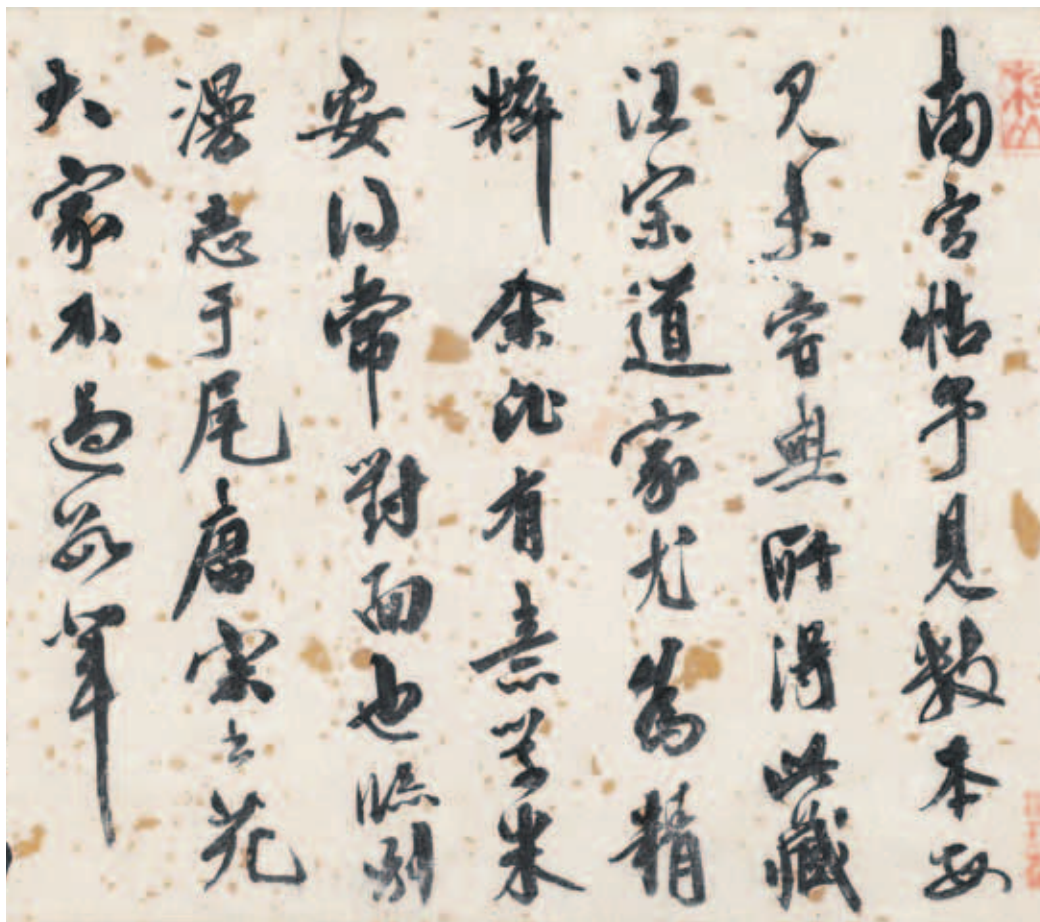 南宮帖予見數本每
見未嘗無所得此藏
汪宗道家尤為精
粹余比有意學米
安得常對面也臨別
漫志于尾唐宋之苑
大家不過